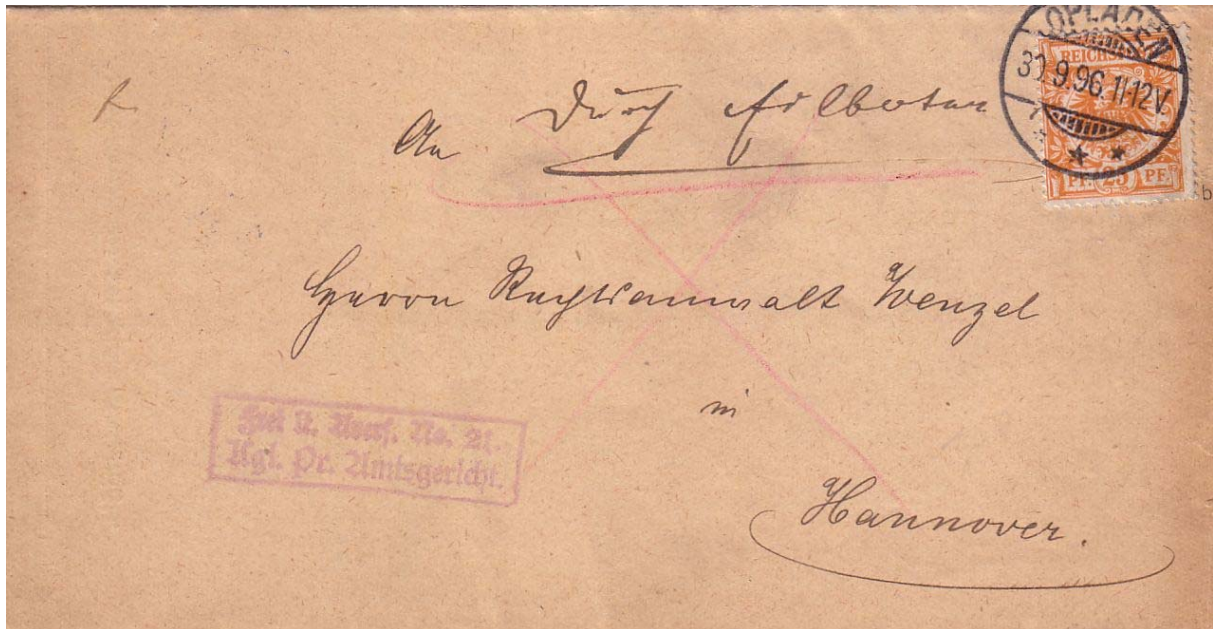 OPLADEN
30.9.96. 11-12V
REICHSPOST
PF. 25 PF.
b
Durch Eilboten
An
Herrn Rechtsanwalt Wenzel
in
Hannover.
Frei lt. Avers. No. 21.
Kgl. Pr. Amtsgericht.